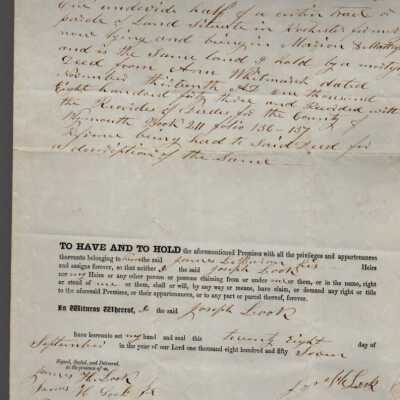 one undevide half of a certin tract or
parcle of Land Situate in Rochester formerly
now lying and being in Marion & Mattap
and is the Same land I hold by a mortga
Deed from Asa Whitmarsh dated
november thirteenth AD one thousand
Eight hundred forty three and Recivded with
the Recivdes of Deeds for the County of
Plymouth Book 211 folio 136-137
Refrence being had to Said Deed for
a discription of the Same
TO HAVE AND TO HOLD the aforementioned Premises with all the privileges and appurtenances
thereunto belonging to him the said James his Heirs
and assigns forever, so that neither I the said Joseph Look
nor my Heirs or any other person or persons claiming from or under me or them, or in the name, right
or stead of me or them, shall or will, by any way or means, have claim, or demand any right or title
to the aforesaid Premises, or their appurtenances, or to any part or parcel thereof, forever.
In Witness Whereof, I the said Joseph Look
have hereunto set my hand and seal this twenty Eight day of
September in the year of our Lord one thousand eight hundred and fifty Seven
Signed, Sealed, and Delivered,
in the presence of us,
James H. Look
James H Look Jr
Look